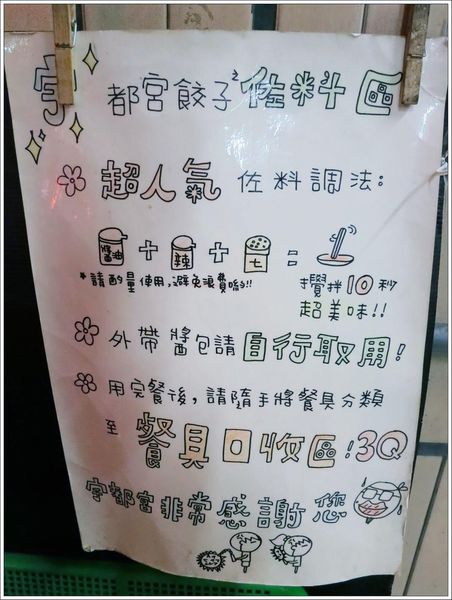 宇都宮餃子之佐料區
超人氣 佐料調法:
醬油 + 辣 + 七 =
*請酌量使用,避免浪費喲!! 攪拌10秒
超美味!!
外帶醬包請自行取用!
用完餐後,請隨手將餐具分類
至 餐具回收區!3Q
宇都宮非常感謝您